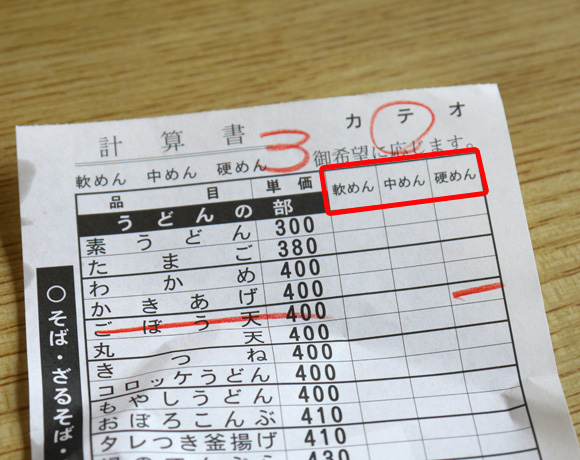 カ テ オ
計算書 3 御希望に応じます。
軟めん 中めん 硬めん
品目 単価 軟めん 中めん 硬めん
うどんの部
素うどん 300
たまご 380
わかめ 400
かきあげ 400
ごぼう天 400
丸天 400
きつね 400
コロッケうどん 400
もやしうどん 400
おぼろこんぶ 410
タレつき釜揚げ 410
430
○そば・ざるそば・